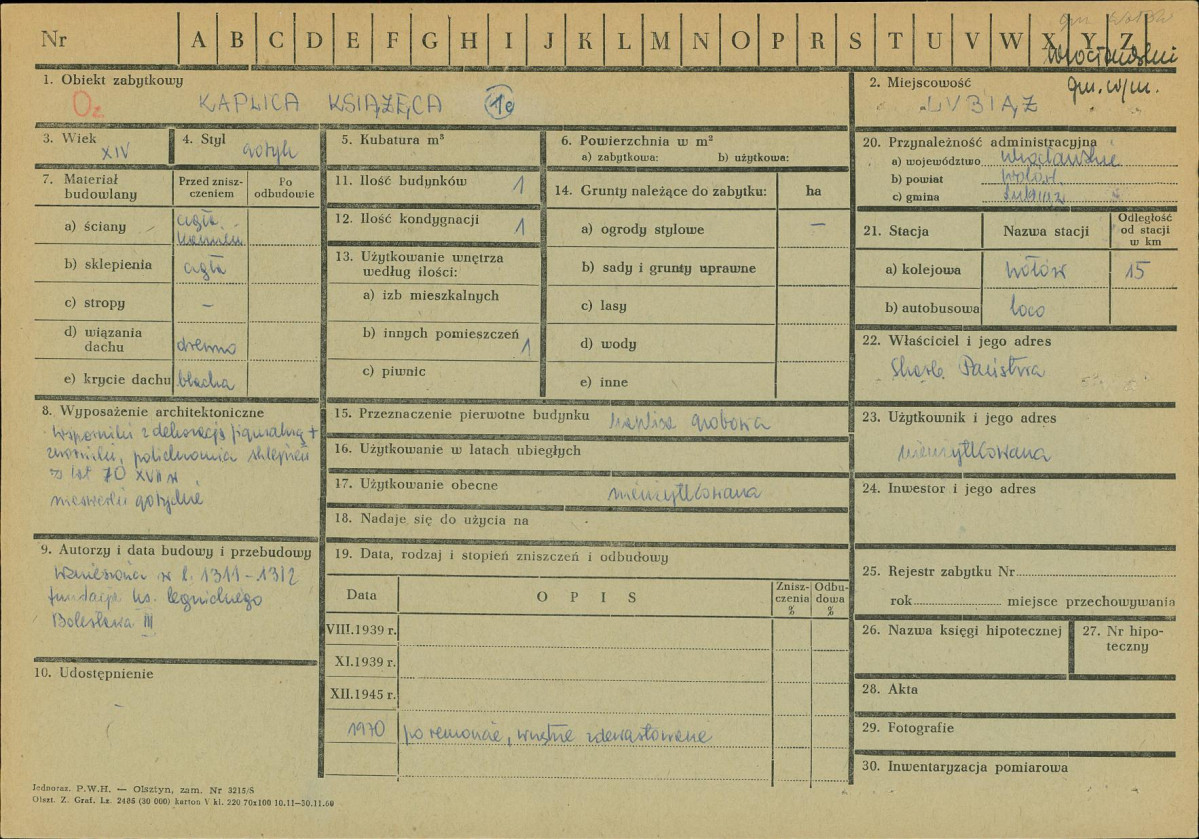 Nr A B C D E F G H I J K L M N O P R S T U V W X Y Z
gm. w/m.
1. Obiekt zabytkowy
Oz KAPLICA KSIĄŻĘCA 1e
2. Miejscowość
LUBIĄŻ
3. Wiek
XIV
4. Styl
gotyk
5. Kubatura m³
6. Powierzchnia w m²
a) zabytkowa: b) użytkowa:
7. Materiał budowlany
Przed zniszczeniem
Po odbudowie
a) ściany cegła kamień
b) sklepienia cegła
c) stropy –
d) wiązania dachu drewno
e) krycie dachu blacha
8. Wyposażenie architektoniczne
wsporniki z dekoracją figuralną +
zworniki, polichromia sklepień
z lat 70 XVII w
maswerki gotyckie
9. Autorzy i data budowy i przebudowy
Wzniesiona w l. 1311-1312
fundacja ks. legnickiego
Bolesława III
10. Udostępnienie
–
11. Ilość budynków 1
12. Ilość kondygnacji 1
13. Użytkowanie wnętrza
według ilości:
a) izb mieszkalnych
b) innych pomieszczeń 1
c) piwnic
14. Grunty należące do zabytku: ha
a) ogrody stylowe –
b) sady i grunty uprawne
c) lasy
d) wody
e) inne
15. Przeznaczenie pierwotne budynku kaplica grobowa
16. Użytkowanie w latach ubiegłych
17. Użytkowanie obecne nieużytkowana
18. Nadaje się do użycia na
19. Data, rodzaj i stopień zniszczeń i odbudowy
Data O P I S Zniszczenia % Odbudowa %
VIII.1939 r.
XI.1939 r.
XII.1945 r.
1970 po remoncie, wnętrze zdewastowane
20. Przynależność administracyjna
a) województwo wrocławskie
b) powiat Wołów
c) gmina Lubiąż
21. Stacja Nazwa stacji Odległość od stacji w km
a) kolejowa Wołów 15
b) autobusowa loco
22. Właściciel i jego adres
Skarb Państwa
23. Użytkownik i jego adres
nieużytkowana
24. Inwestor i jego adres
25. Rejestr zabytku Nr
rok miejsce przechowywania
26. Nazwa księgi hipotecznej
27. Nr hipoteczny
28. Akta
29. Fotografie
30. Inwentaryzacja pomiarowa
Jednoraz. P.W.H. — Olsztyn, zam. Nr 3215/S
Olszt. Z. Graf. Lz. 2486 (30 000) karton V kl. 220 70x100 10.11—30.11.60